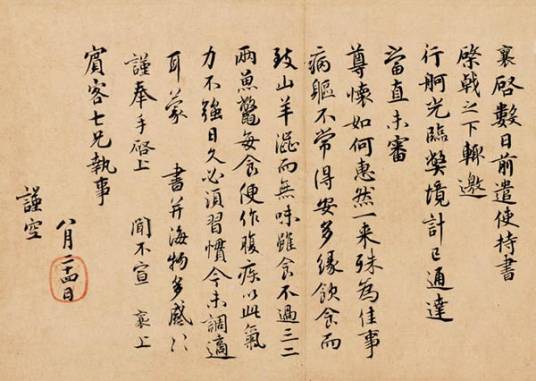 襄啓數日前遣使持書
棨戟之下輙邀
行舸光臨獘境計已通達
當直未審
尊懷如何惠然一来殊為佳事
病軀不常得安多緣飲食而
致山羊澀而無味雖食不過三二
兩魚鼈每食便作腹疾以此氣
力不强日久必須習慣今未調適
耳蒙 書并海物多感〻
謹奉手啓上 聞不宣 襄上
賓客七兄執事
八月二十四日
謹空